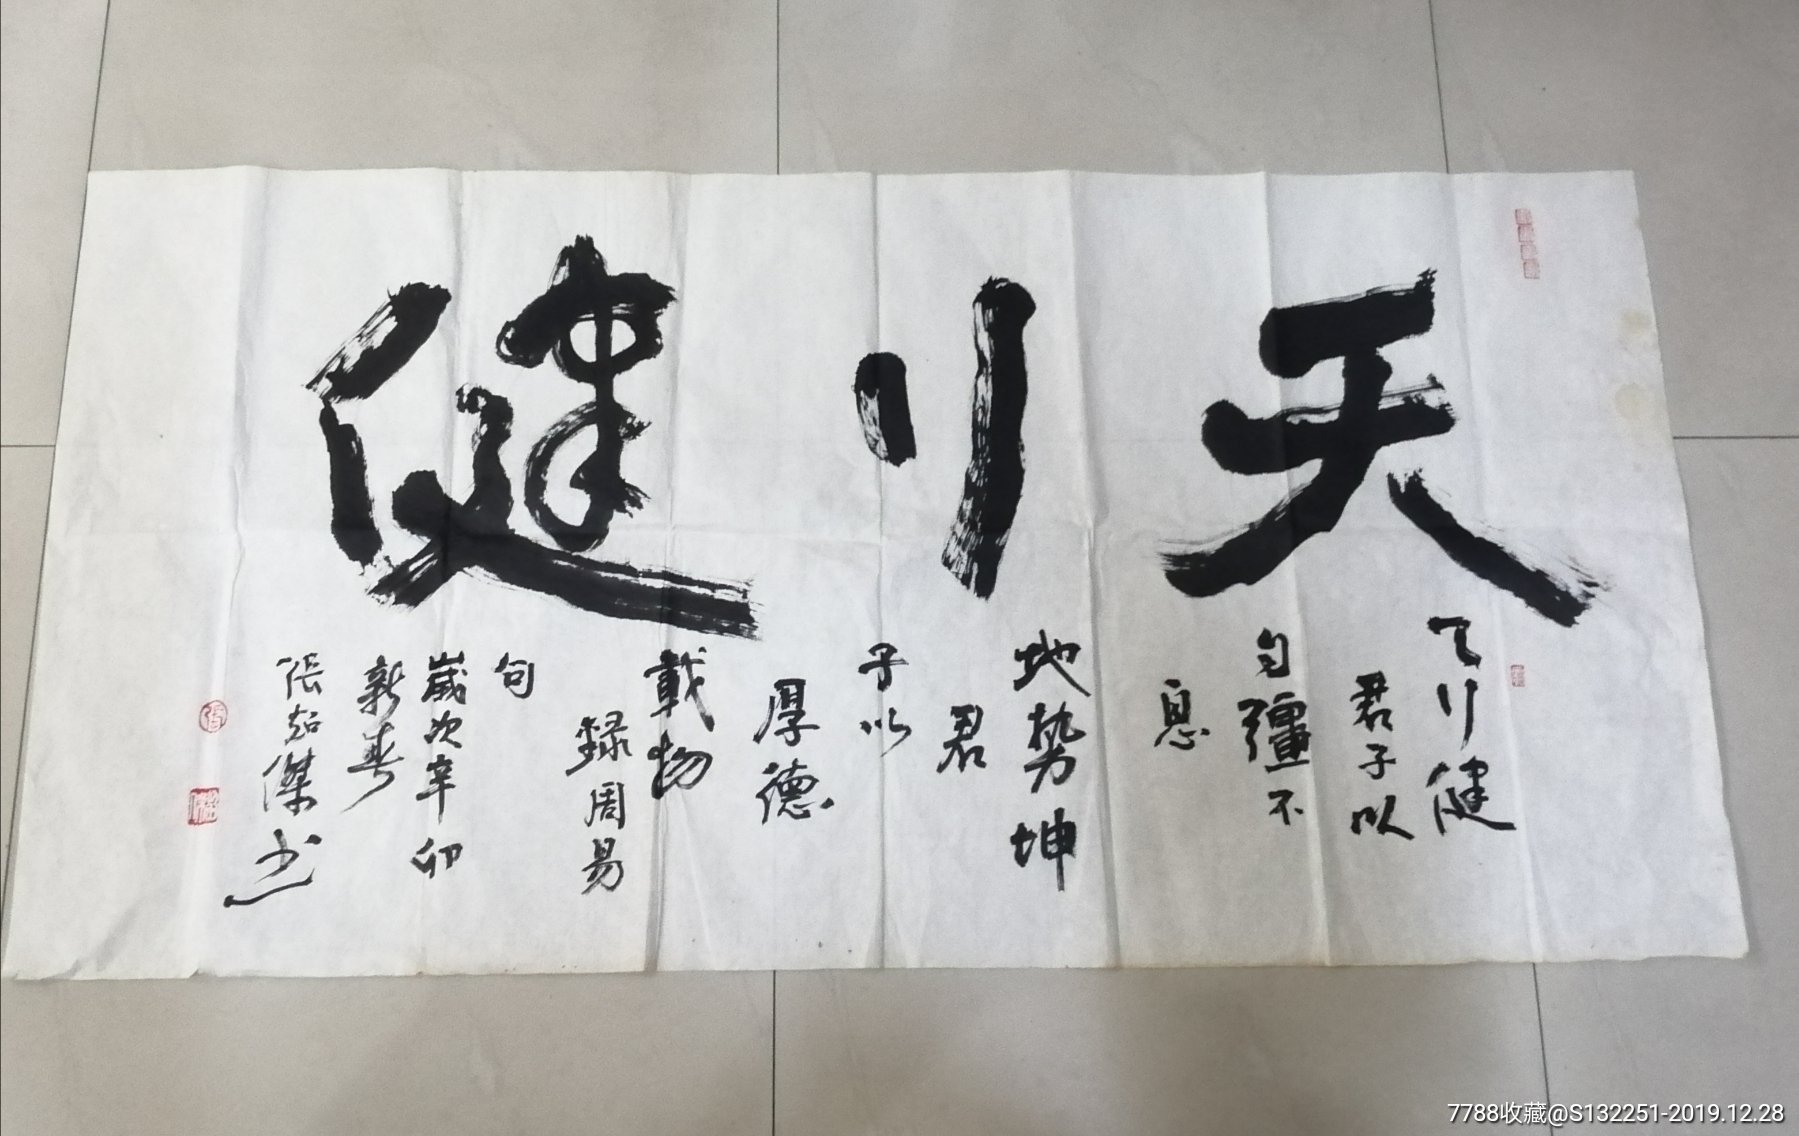 天行健
天行健
君子以
自彊不
息
地势坤
君
子以
厚德
載物
録周易
句
歲次辛卯
新春
張
傑书
7788收藏@S132251-2019.12.28